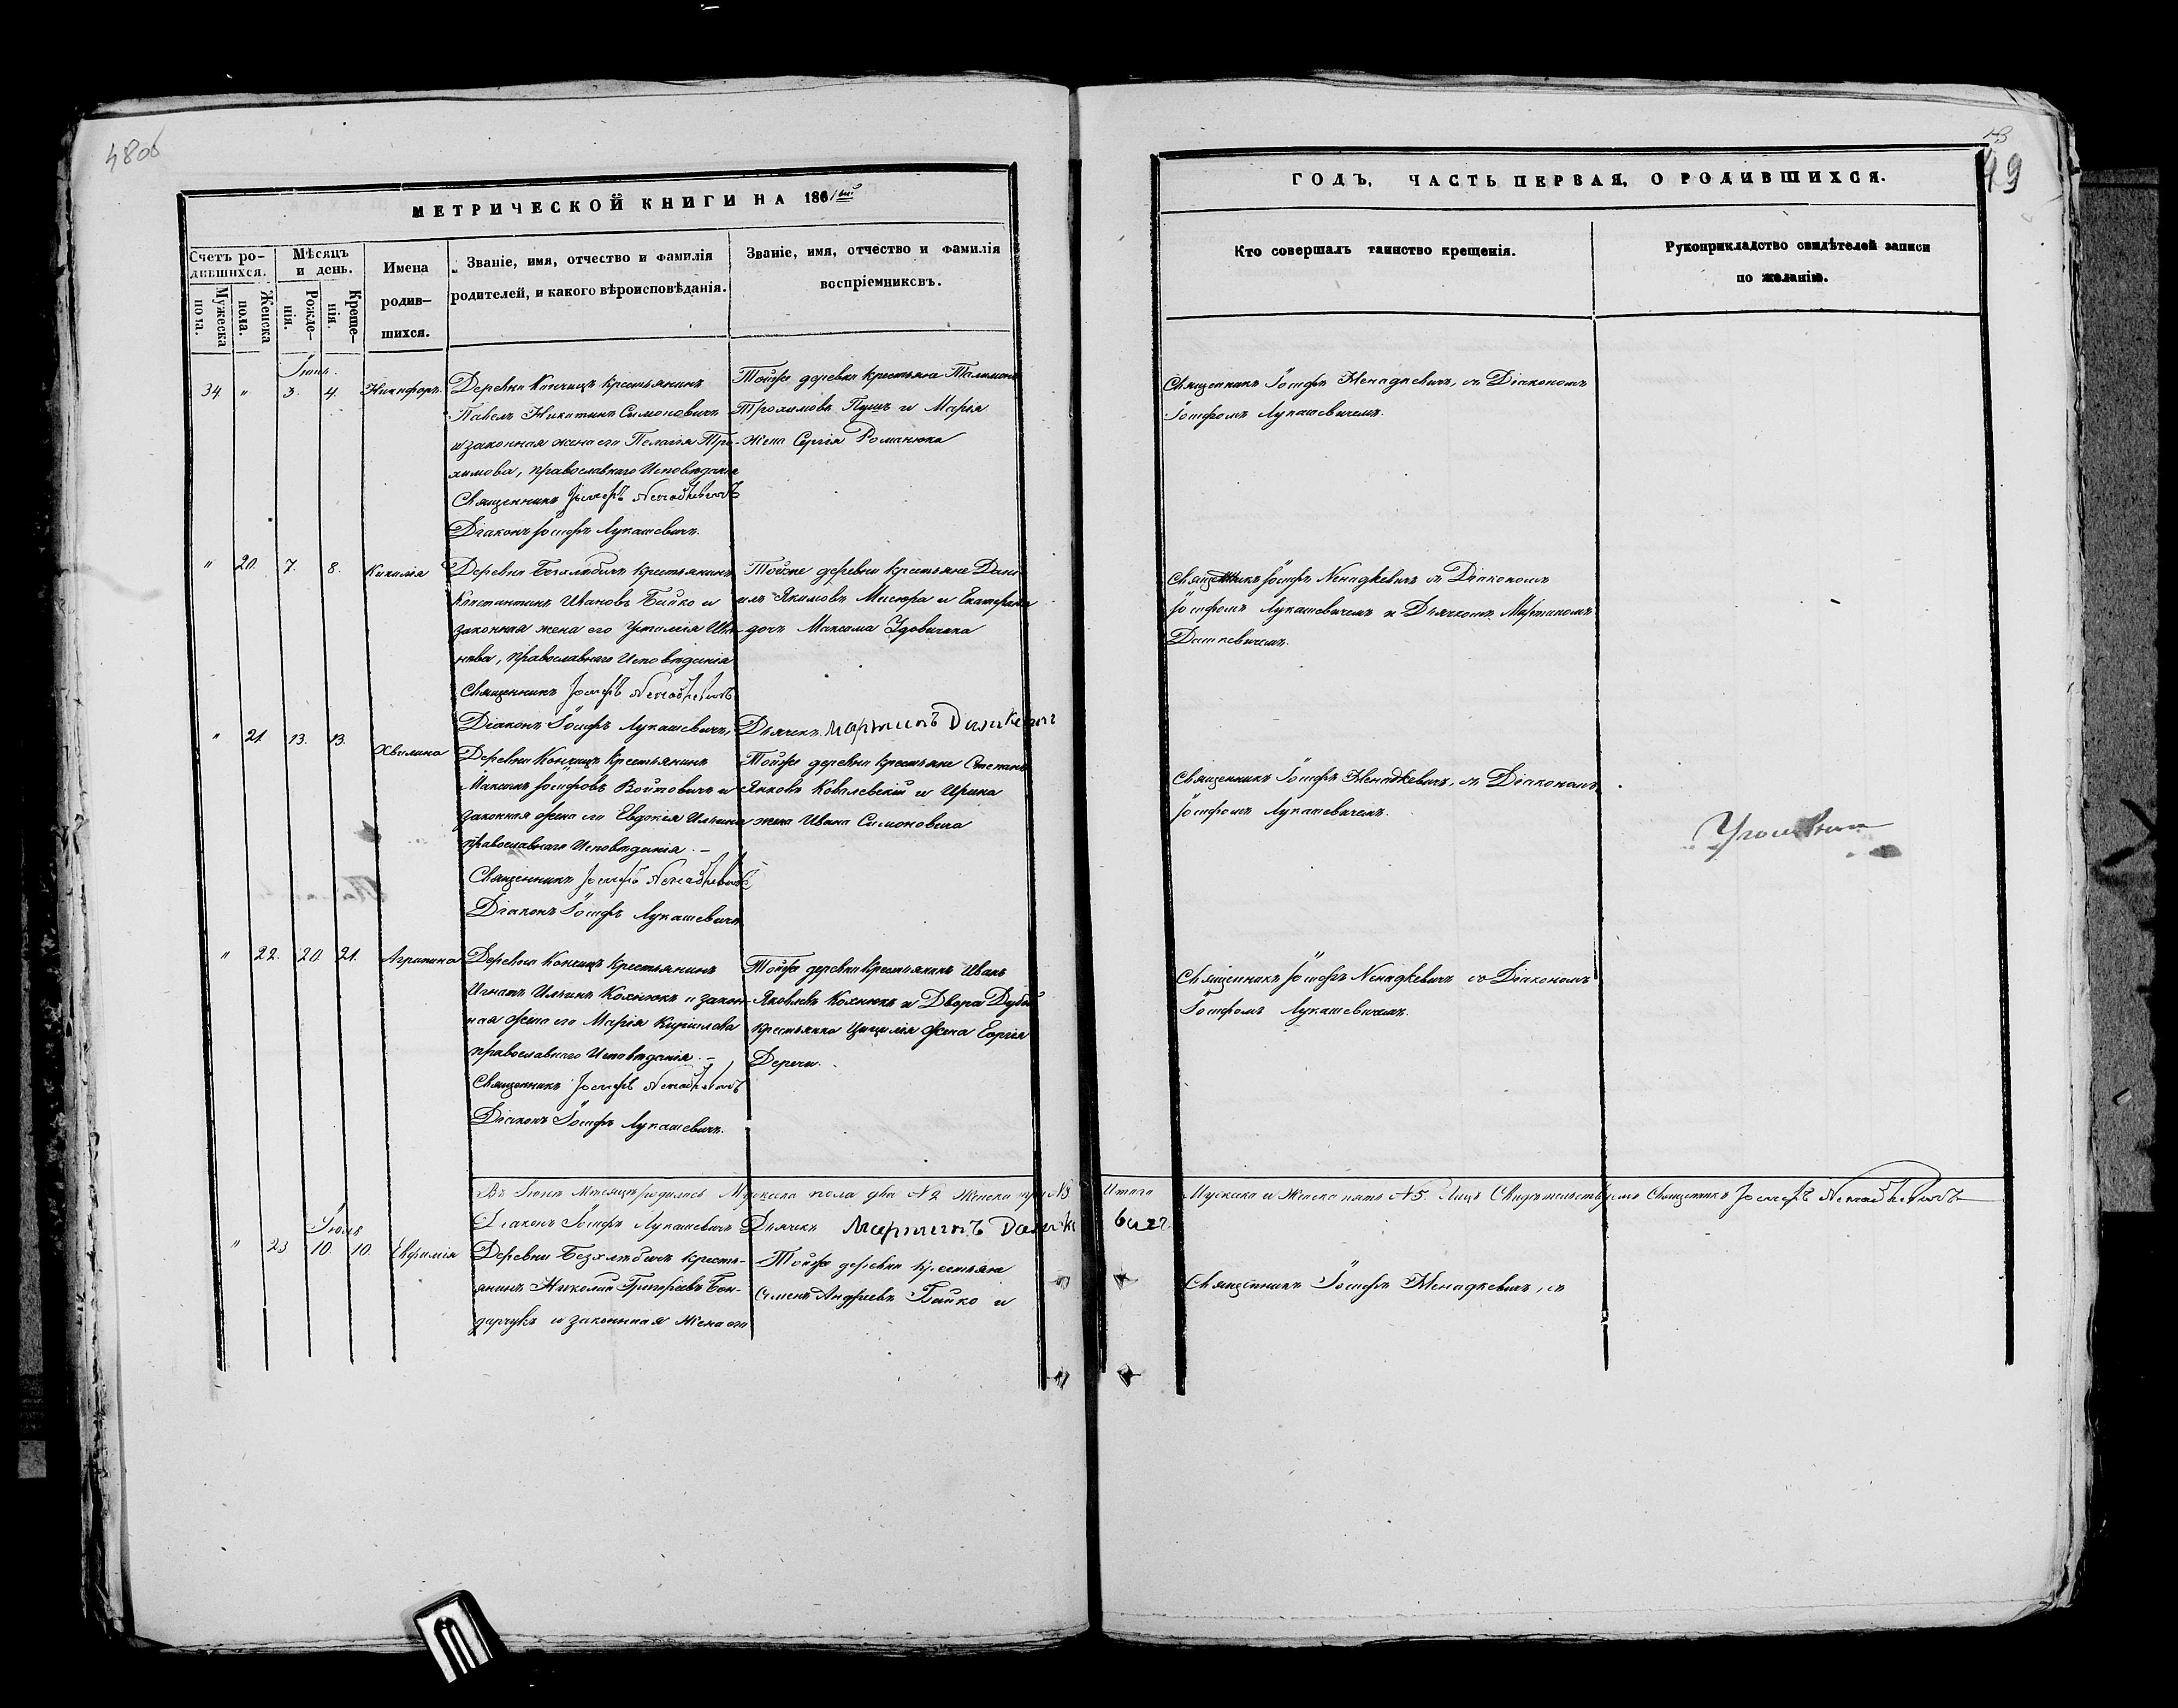 48об
МЕТРИЧЕСКОЙ КНИГИ НА 1861й
Счетъ ро-
дившихся.
Мужеска
пола.
Женска
пола.
Мѣсяцъ
и день.
Рожде-
нія.
Креще-
нія.
Имена
родив-
шихся.
Званіе, имя, отчество и фамилія
родителей, и какого вѣроисповѣданія.
Званіе, имя, отчество и фамилія
воспріемниковъ.
Іюнь.
34 " 3. 4. Никифоръ
Деревни Кончицъ крестьянинъ
Павелъ Никитинъ Симоновичъ
и законная жена его Пелагія Тро-
химова, православнаго Исповѣданія
Священникъ Іосифъ Ненадкевичъ
Діаконъ Іосифъ Лукашевичъ.
Тойже деревни крестьяне Талимонъ
Трохимовъ Пушъ и Марія
жена Сергія Романюка
" 20. 7. 8. Кикилія
Деревни Безхлѣбичъ крестьянинъ
Константинъ Ивановъ Байко и
законная жена его Устимія Ива-
нова, православнаго Исповѣданія
Священникъ Іосифъ Ненадкевичъ
Діаконъ Іосифъ Лукашевичъ,
Тойже деревни крестьяне Дани-
илъ Якимовъ Мисюра и Екатерина
дочь Максима Удовичака
Дьячекъ Мартинъ Дашкевичъ
" 21. 13. 13. Хвилина
Деревни Кончицъ крестьянинъ
Максимъ Іосифовъ Войтовичъ и
законная жена его Евдокія Ильина
православнаго Исповѣданія. –
Священникъ Іосифъ Ненадкевичъ
Діаконъ Іосифъ Лукашевичъ
Тойже деревни крестьяне Степанъ
Янковъ Ковалевскій и Ирина
жена Ивана Симоновича
" 22. 20. 21. Агрипина
Деревни Кончицъ крестьянинъ
Игнатъ Ильинъ Кохнюкъ и закон-
ная жена его Марія Кирилова
православнаго Исповѣданія. –
Священникъ Іосифъ Ненадкевичъ
Діаконъ Іосифъ Лукашевичъ.
Тойже деревни крестьянинъ Иванъ
Яковлевъ Кохнюкъ и Двора Дубой
крестьянка Цицилія жена Еоргія
Деречи.
Въ Іюнѣ Мѣсяцѣ родилось Мужеска пола два №2 Женска три №3
Діаконъ Іосифъ Лукашевичъ Дьячекъ Мартинъ Дашке
вичъ
Іюль
" 23 10. 10. Евфимія
Деревни Безхлѣбичъ кресть-
янинъ Николай Григорьевъ Бон-
дарчукъ и законная жена его
Тойже деревни крестьяне
Семенъ Андреевъ Байко и
49
ГОДЪ, ЧАСТЬ ПЕРВАЯ, О РОДИВШИХСЯ.
Кто совершалъ таинство крещенія.
Рукоприкладство свидѣтелей записи
по желанію.
Священникъ Іосифъ Ненадкевичъ, съ Діакономъ
Іосифомъ Лукашевичемъ.
Священникъ Іосифъ Ненадкевичъ съ Діакономъ
Іосифомъ Лукашевичемъ и Дьячкомъ Мартиномъ
Дашкевичемъ.
Священникъ Іосифъ Ненадкевичъ, съ Діакономъ
Іосифомъ Лукашевичемъ.
Священникъ Іосифъ Ненадкевичъ съ Діакономъ
Іосифомъ Лукашевичемъ.
Итого Мужеска и Женска пять №5. Лицъ Свидѣтельствуемъ Священникъ Іосифъ Ненадкевичъ
Священникъ Іосифъ Ненадкевичъ, съ